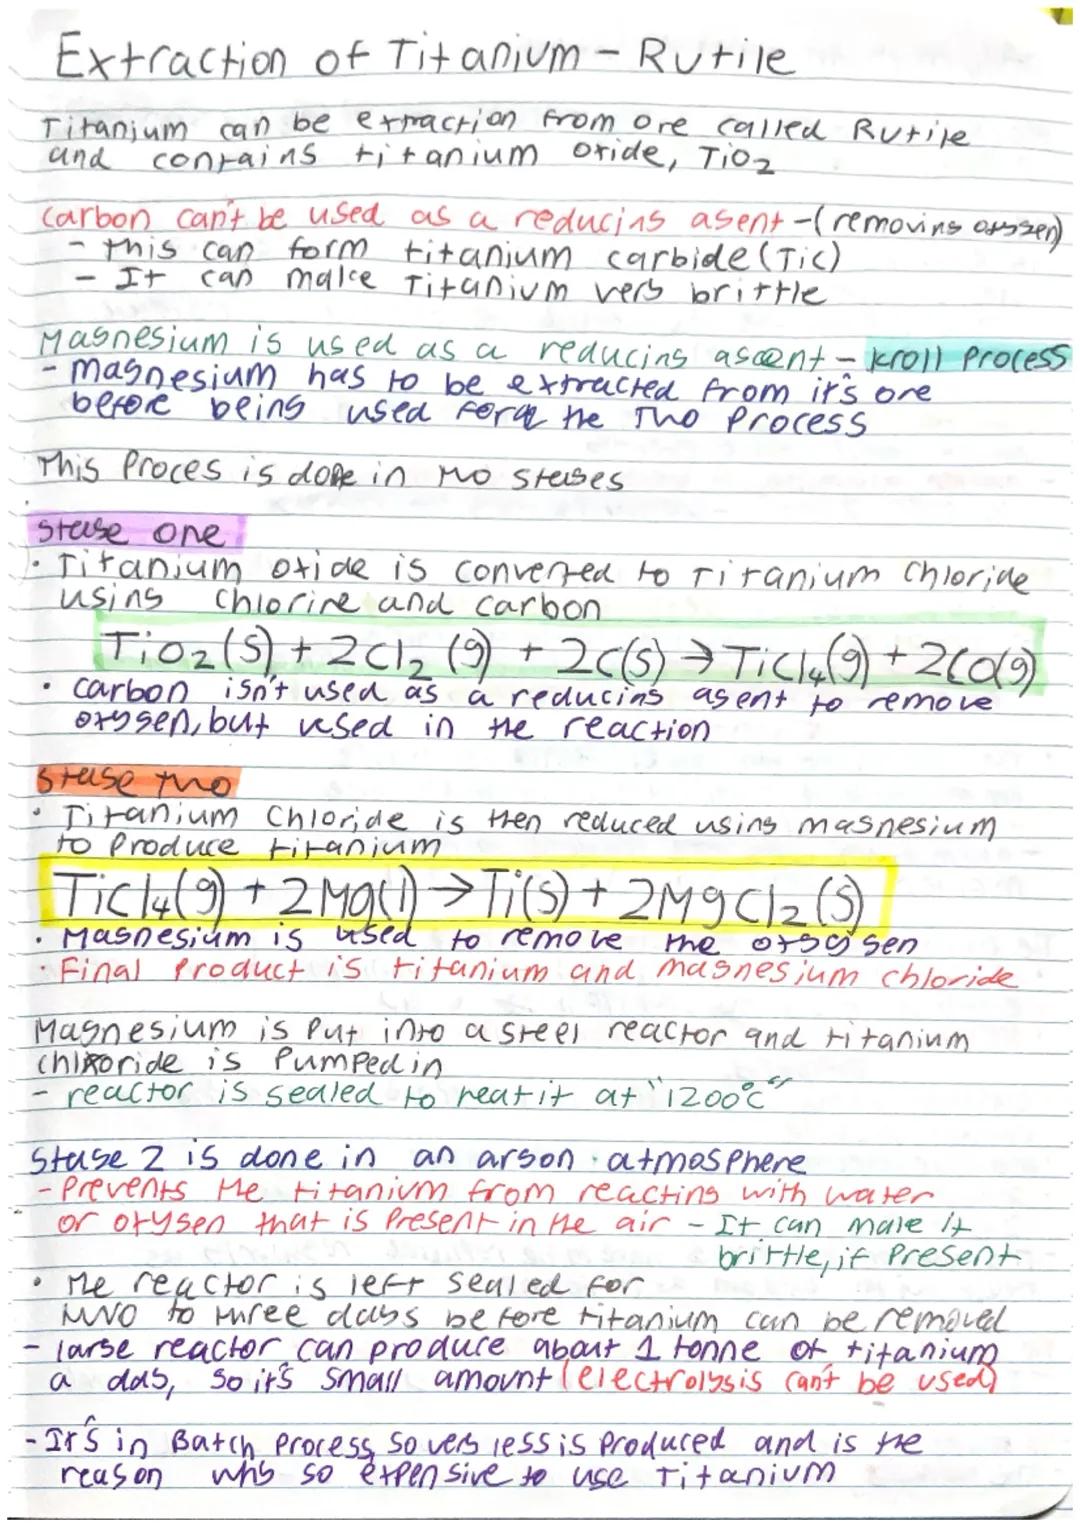 Extraction of Titanium - Rutile
Titanium can be extraction from ore called Rutile
and contains titanium oxide, TiO2
Carbon can't be used as a reducing agent - (removing oxygen)
- this can form titanium carbide (Tic)
- It can make Titanium very brittle
Magnesium is used as a reducing agent - kroll Process
- magnesium has to be extracted from it's ore
before being used for the two Process
This Proces is done in two stages
Stage one
• Titanium oxide is converted to Titanium Chloride
using Chlorine and carbon
TiO2(s) + 2Cl2 (g) + 2C(s) → TiCl4(g) + 2CO(g)
• carbon isn't used as a reducing agent to remove
oxygen, but used in the reaction
Stage two
• Titanium Chloride is then reduced using magnesium
to Produce titanium
TiCl4(g) + 2Mg(l) → Ti(s) + 2MgCl2(s)
• Magnesium is used to remove the oxygen
• Final Product is titanium and magnesium chloride
Magnesium is Put into a steel reactor and titanium
chloride is Pumped in
- reactor is sealed to heat it at "1200°C"
Stage 2 is done in an argon atmosphere
- Prevents the titanium from reacting with water
or oxygen that is Present in the air - It can make it
brittle, if Present
• The reactor is left sealed for
two to three days before titanium can be removed
- large reactor can produce about 1 tonne of titanium
a day, so it's small amount (electrolysis can't be used)
- It's in Batch Process, so very less is Produced and is the
reason why so expensive to use Titanium